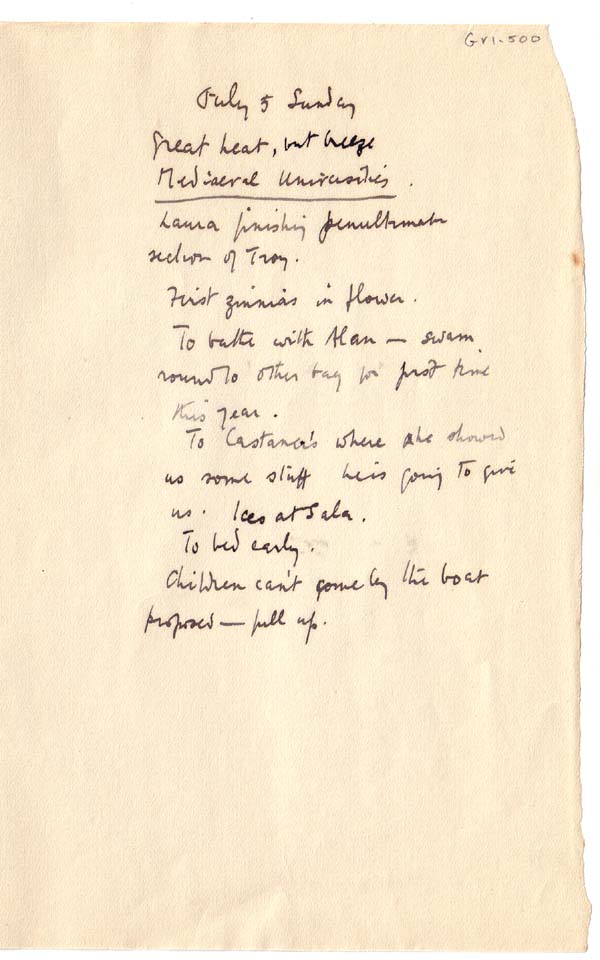 GVI-500
July 5 Sunday
Great heat, but breeze
Mediaeval Universities.
Laura finishing penultimate
section of Troy.
First zinnias in flower.
To bathe with Alan — swam
round to other bay for first time
this year.
To Castaner's where he showed
us some stuff he is going to give
us. Ices at Sala.
To bed early.
Children can't come by the boat
proposed — full up.